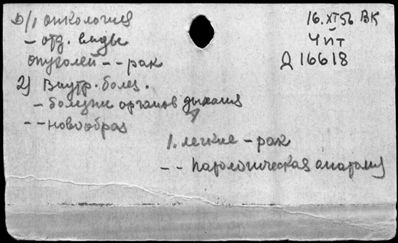 1) онкология
- отд. виды
опухолей -- рак
2) Внутр. болез.
- болезни органов дыхания
-- новообраз
1. легкие - рак
-- патологическая анатомия
16.XI56 ВК
Чйт
Д16618